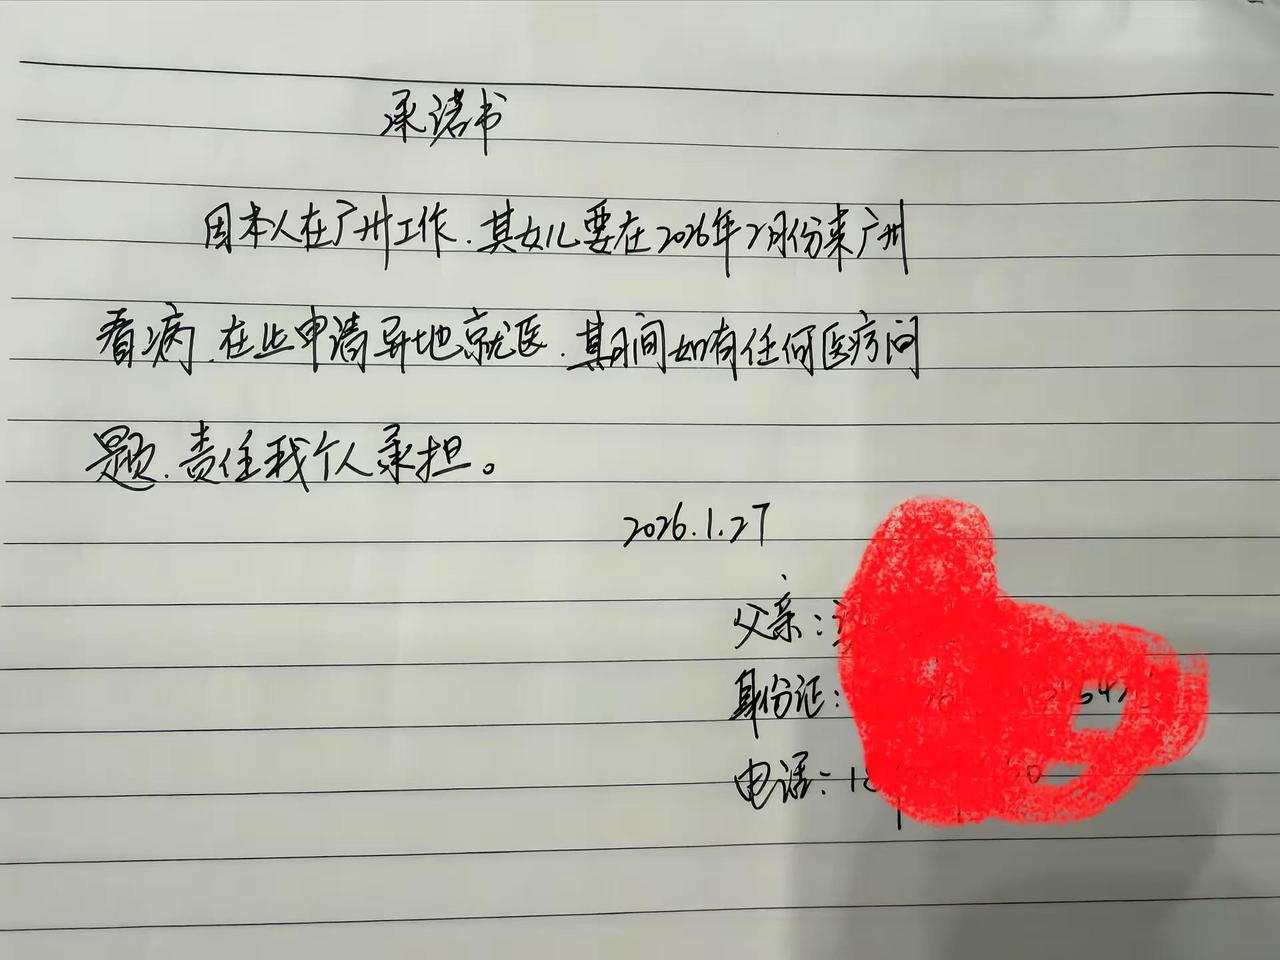 承诺书
因本人在广州工作.其女儿要在2026年2月份来广州
看病.在此申请异地就医.其期间如有任何医疗问
题.责任我个人承担。
2026.1.27
父亲:
身份证:
电话: